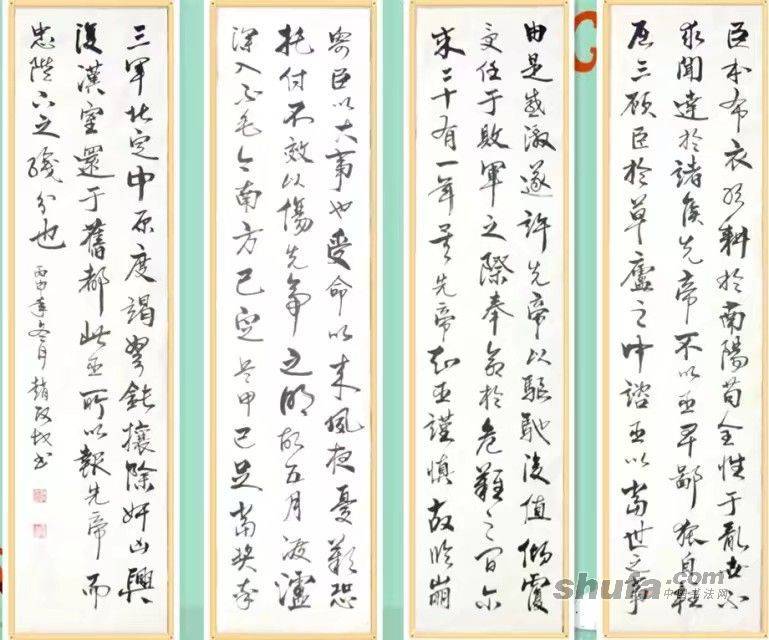 臣本布衣躬耕於南陽苟全性于亂世不
求聞達於諸侯先帝不以臣卑鄙猥自枉
屈三顧臣於草廬之中諮臣以當世之事
由是感激遂許先帝以驅馳後值傾覆
受任于敗軍之際奉命於危難之間尔
來二十有一年矣先帝知臣謹慎故臨崩
寄臣以大事也受命以來夙夜憂歎恐
托付不效以傷先帝之明故五月渡瀘
深入不毛今南方已定兵甲已足當獎率
三軍北定中原庶竭駑鈍攘除奸凶興
復漢室還于舊都此臣所以報先帝而
忠陛下之職分也 丙申年冬月 趙 書
shufa.com
中国书法网